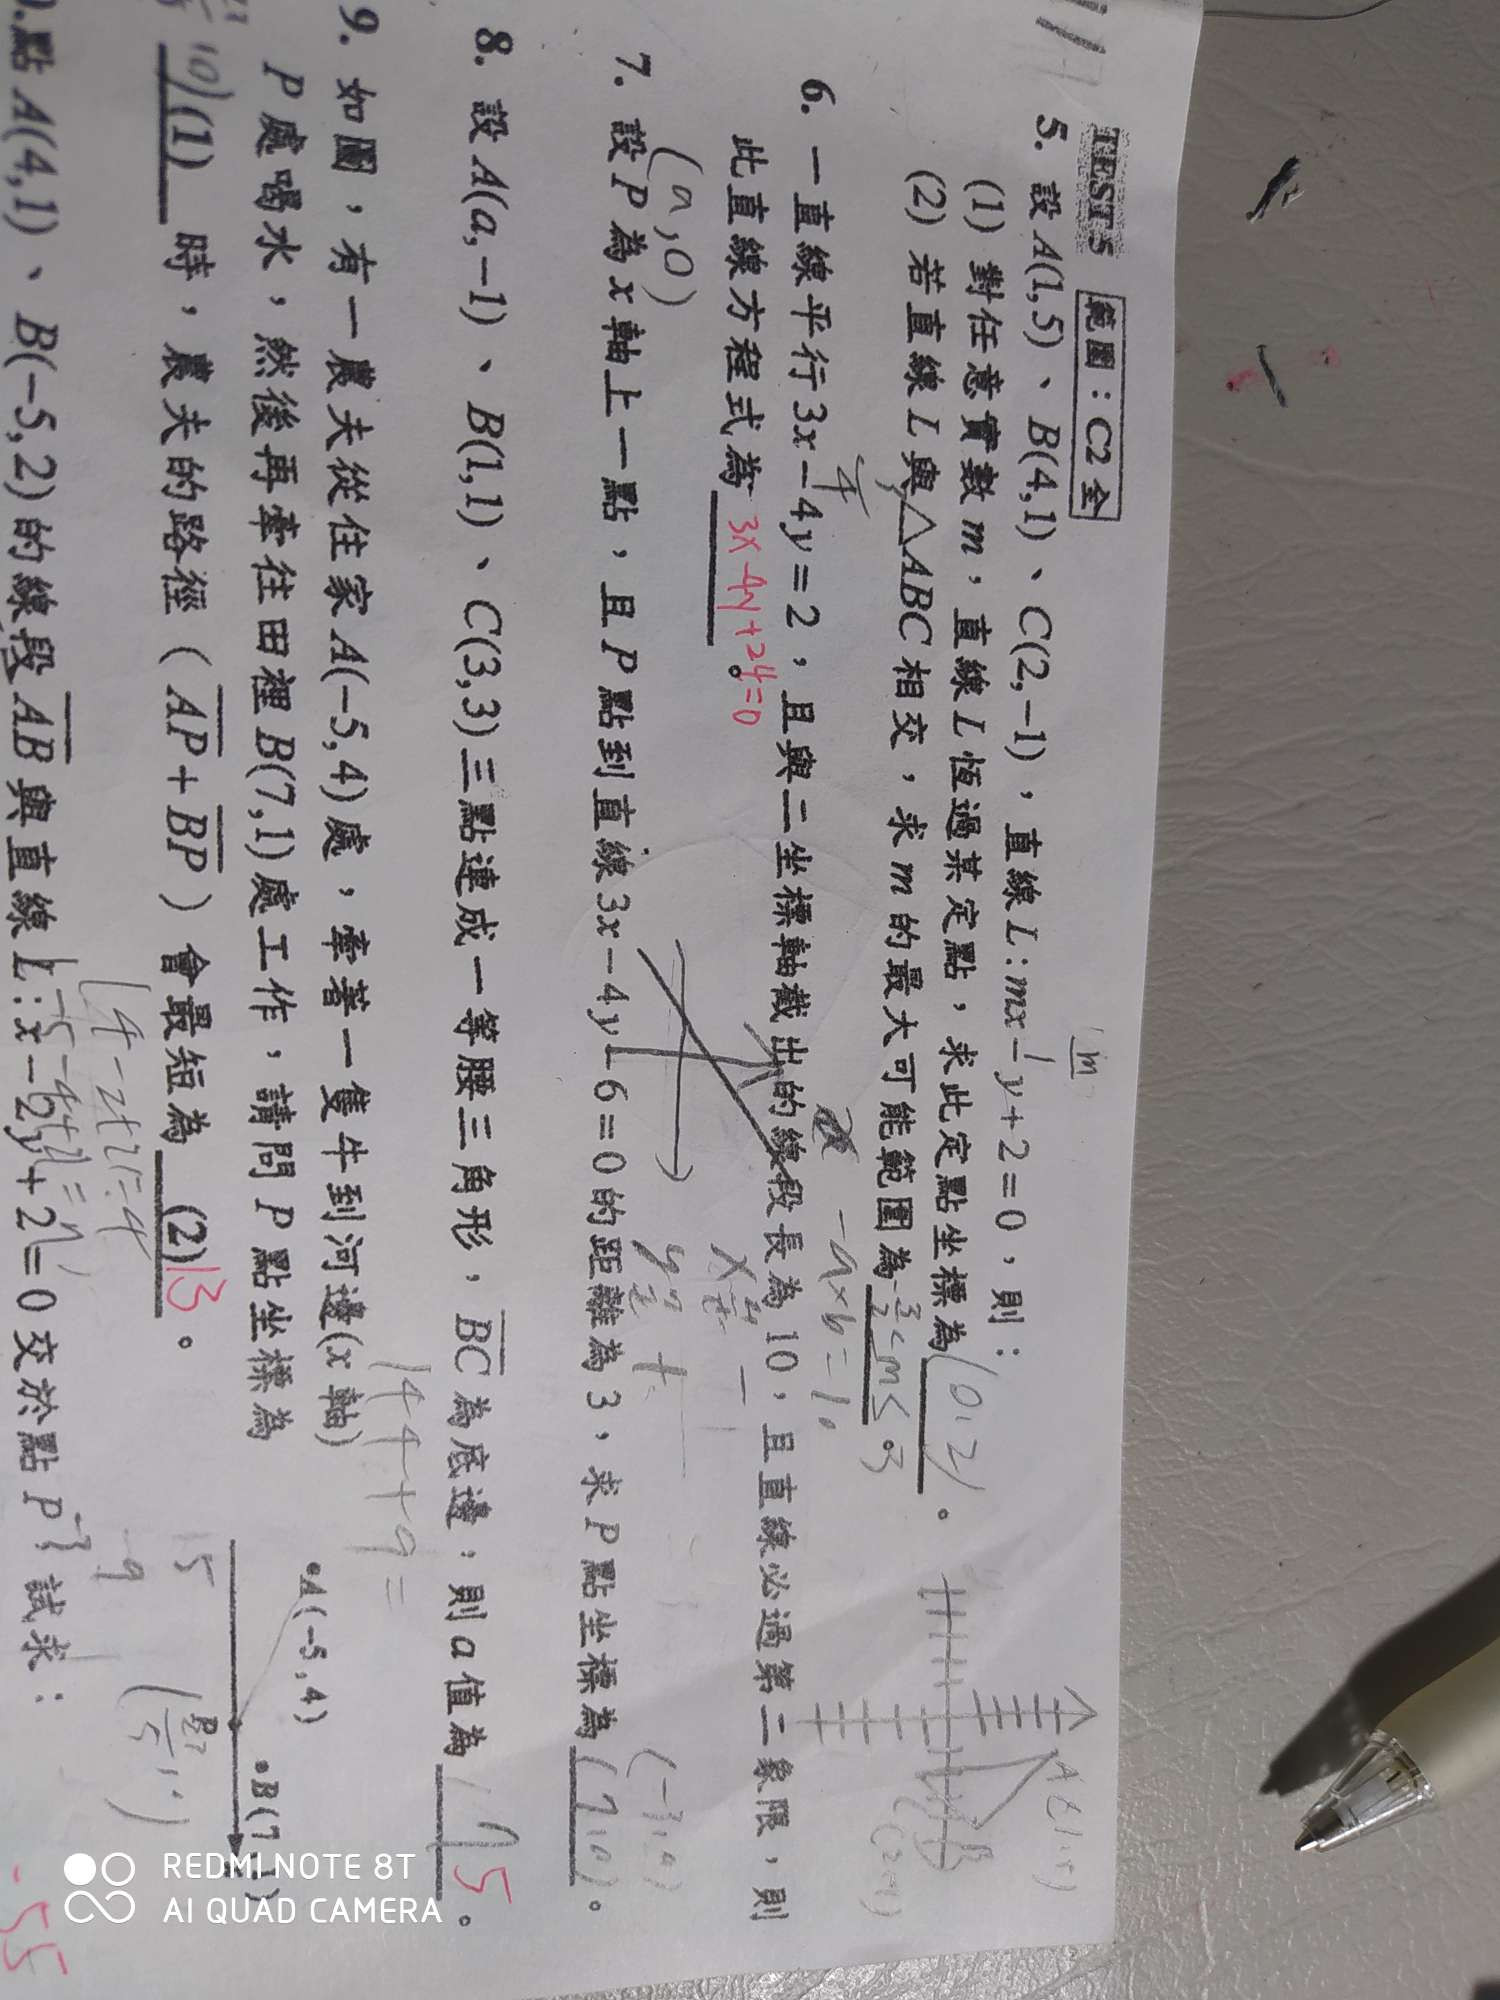 TEST 5 範圍：C2全
5. 設A(1,5)、B(4,1)、C(2,−1)，直線L:mx−y+2=0，則：
(1) 對任意實數m，直線L恆過某定點，求此定點坐標為 (0,2) 。
(2) 若直線L與△ABC相交，求m的最大可能範圍為 -3/2≤m≤3
6. 一直線平行3x−4y=2，且與二坐標軸截出的線段長為10，且直線必過第二象限，則
此直線方程式為 3x-4y+24=0 。
-a×b=10
(a,0)
7. 設P為x軸上一點，且P點到直線3x−4y−6=0的距離為3，求P點坐標為 (7,0) 。
(-3,0)
8. 設A(a,−1)、B(1,1)、C(3,3)三點連成一等腰三角形，BC為底邊：則a值為 5 。
9. 如圖，有一農夫從住家A(−5,4)處，牽著一隻牛到河邊(x軸)
P處喝水，然後再牽往田裡B(7,1)處工作，請問P點坐標為
(1) 時，農夫的路徑（AP+BP）會最短為 (2) 13 。
A(−5,4)
B(7,1)
.點A(4,1)、B(−5,2)的線段AB與直線L:x−2y+2=0交於點P，試求：
-55
REDMI NOTE 8T
AI QUAD CAMERA